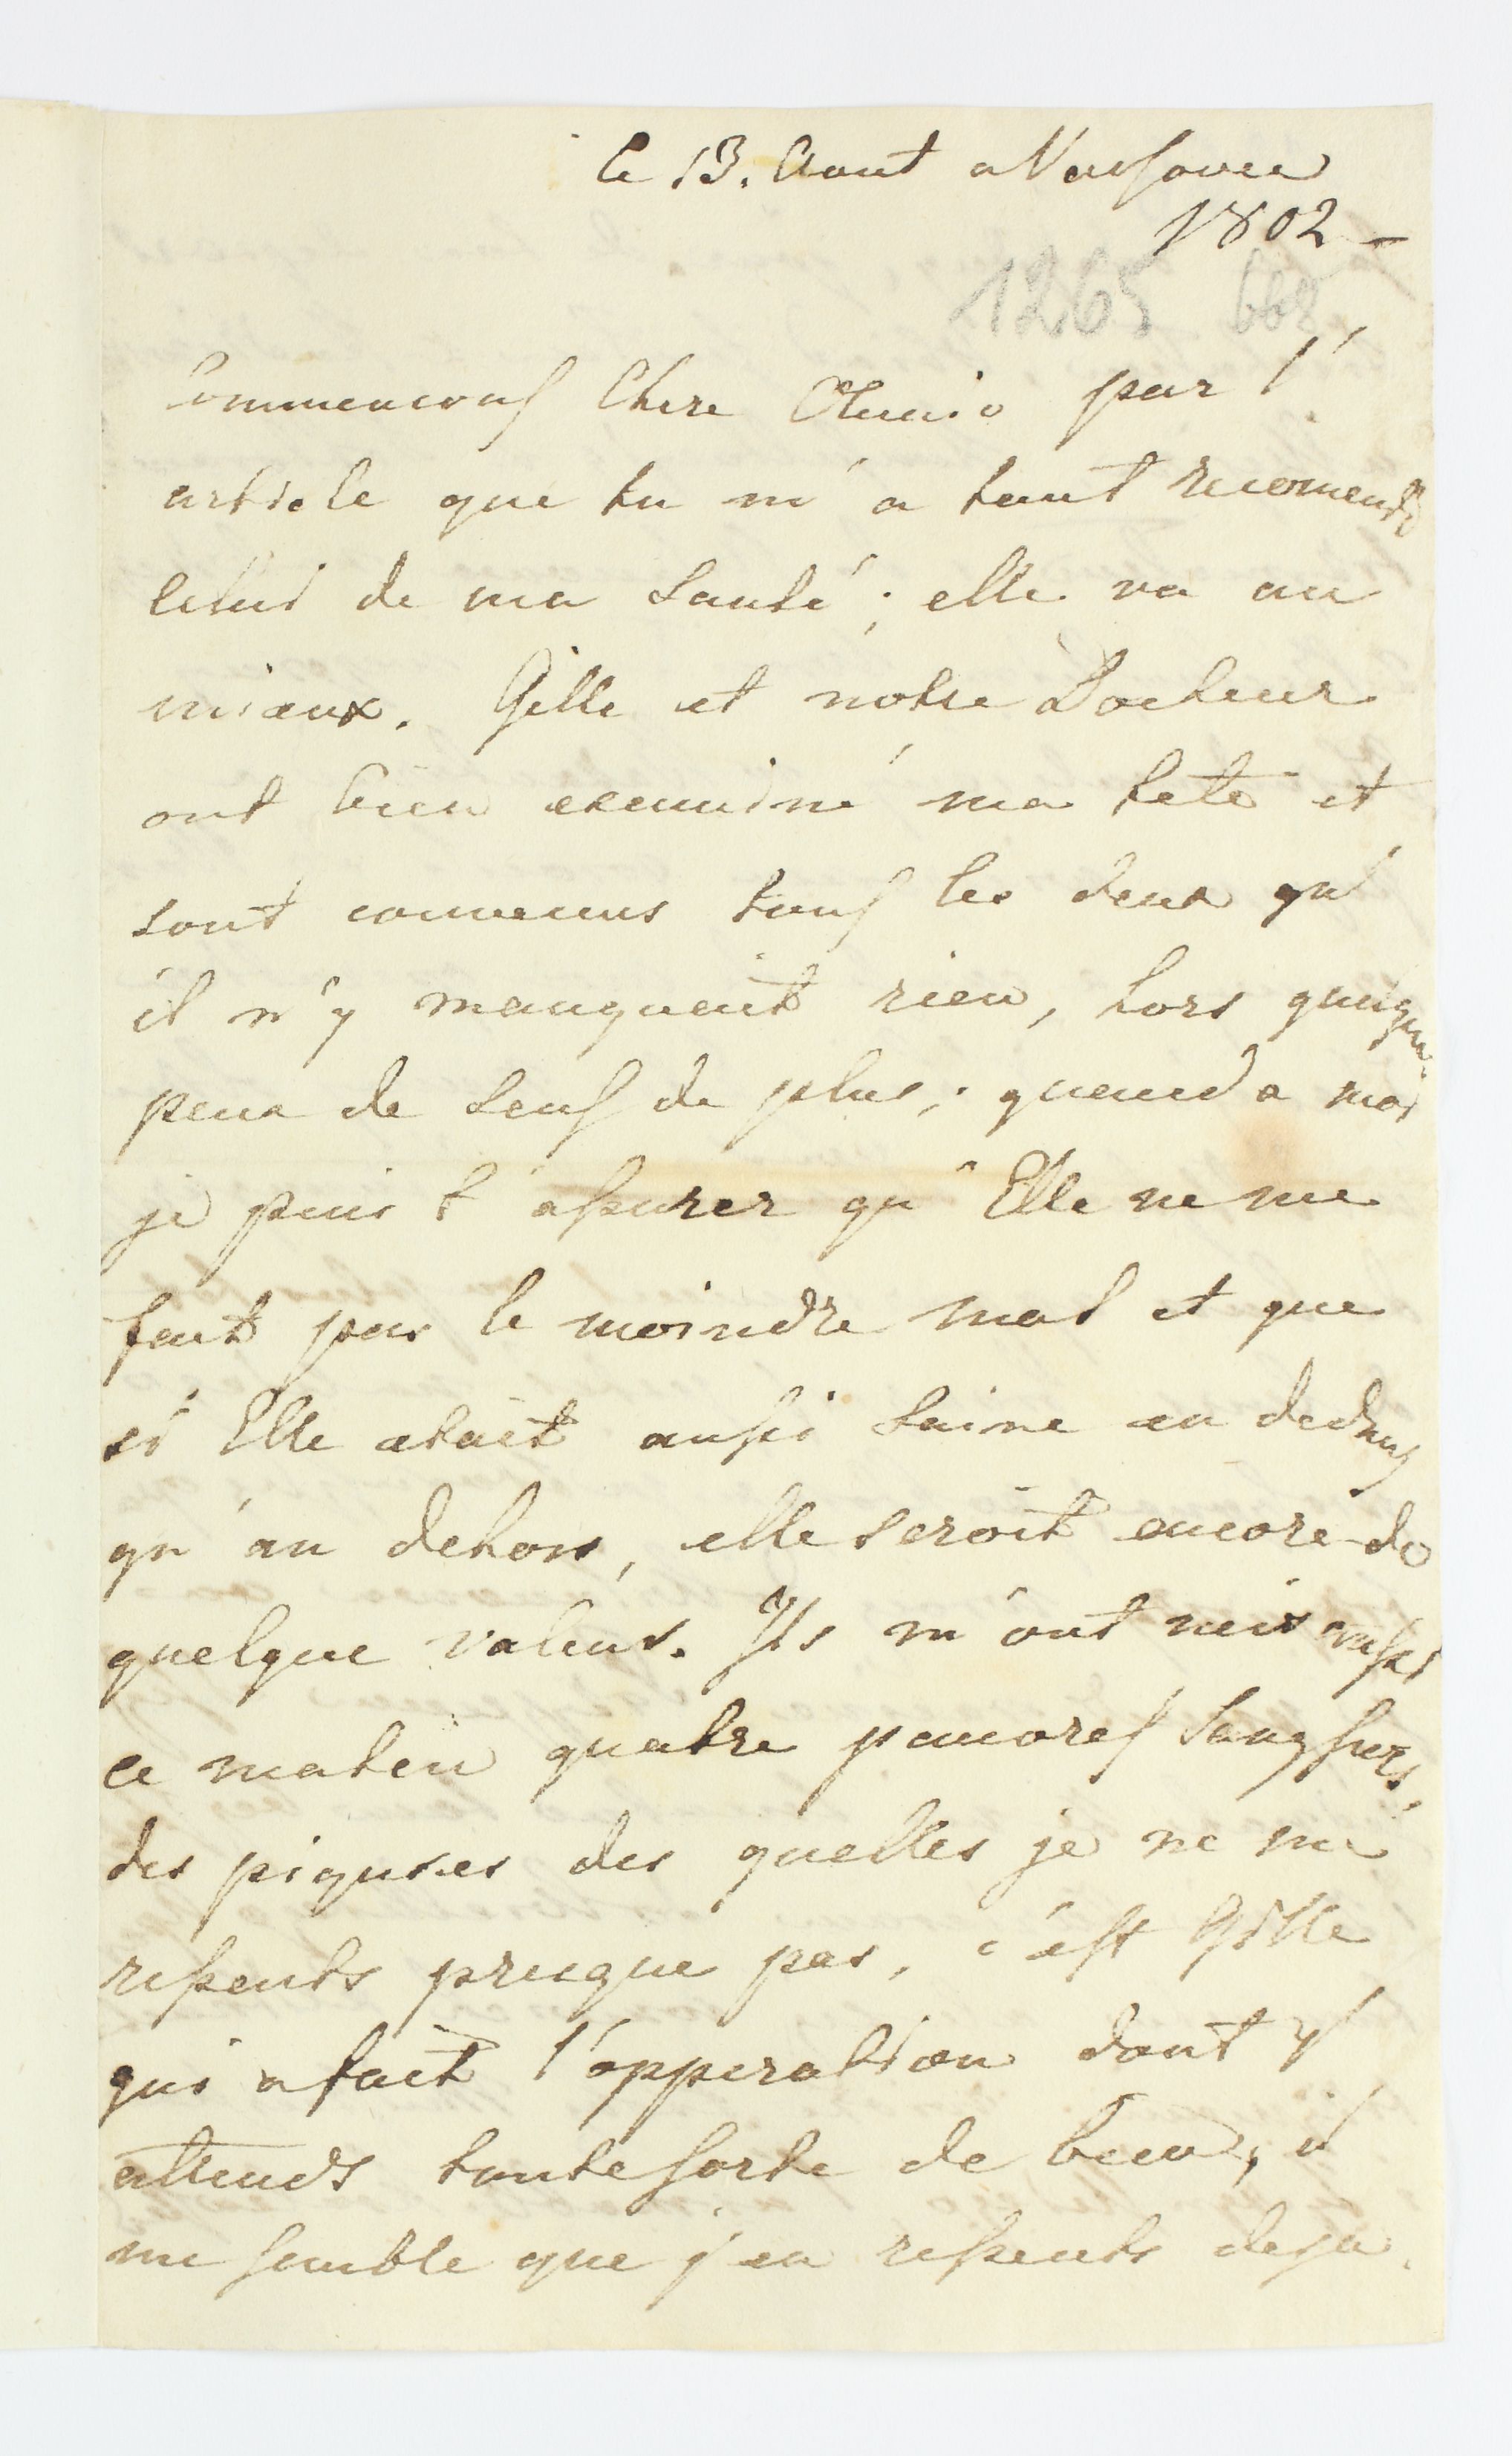 le 13. Aout a Varsovie
1802 –
1265 668
Commencons Chere Omnio par l'
article que tu m'a tant recomendé
celui de ma Santé; elle va au
miaux. Gille et notre Docteur
ont bien examiné ma tete et
sont convenus tous les deux qu'
il n'y manquait rien, hors quelque
peux de sens de plus; quand a moi
je puis t'assurer qu'Elle ne me
fait pas le moindre mal et que
si Elle etait aussi Saine en dedans
qu'au dehors, elle seroit encore de
quelque valeur. Ils m'ont mis aussi
ce matin quatre pauvres Sangsues,
des piqures des quelles je ne me
ressents presque pas, c'est Gille
qui a fait l'opperation dont y
attends toute sorte de bien, il
me semble que j'en ressents deja.